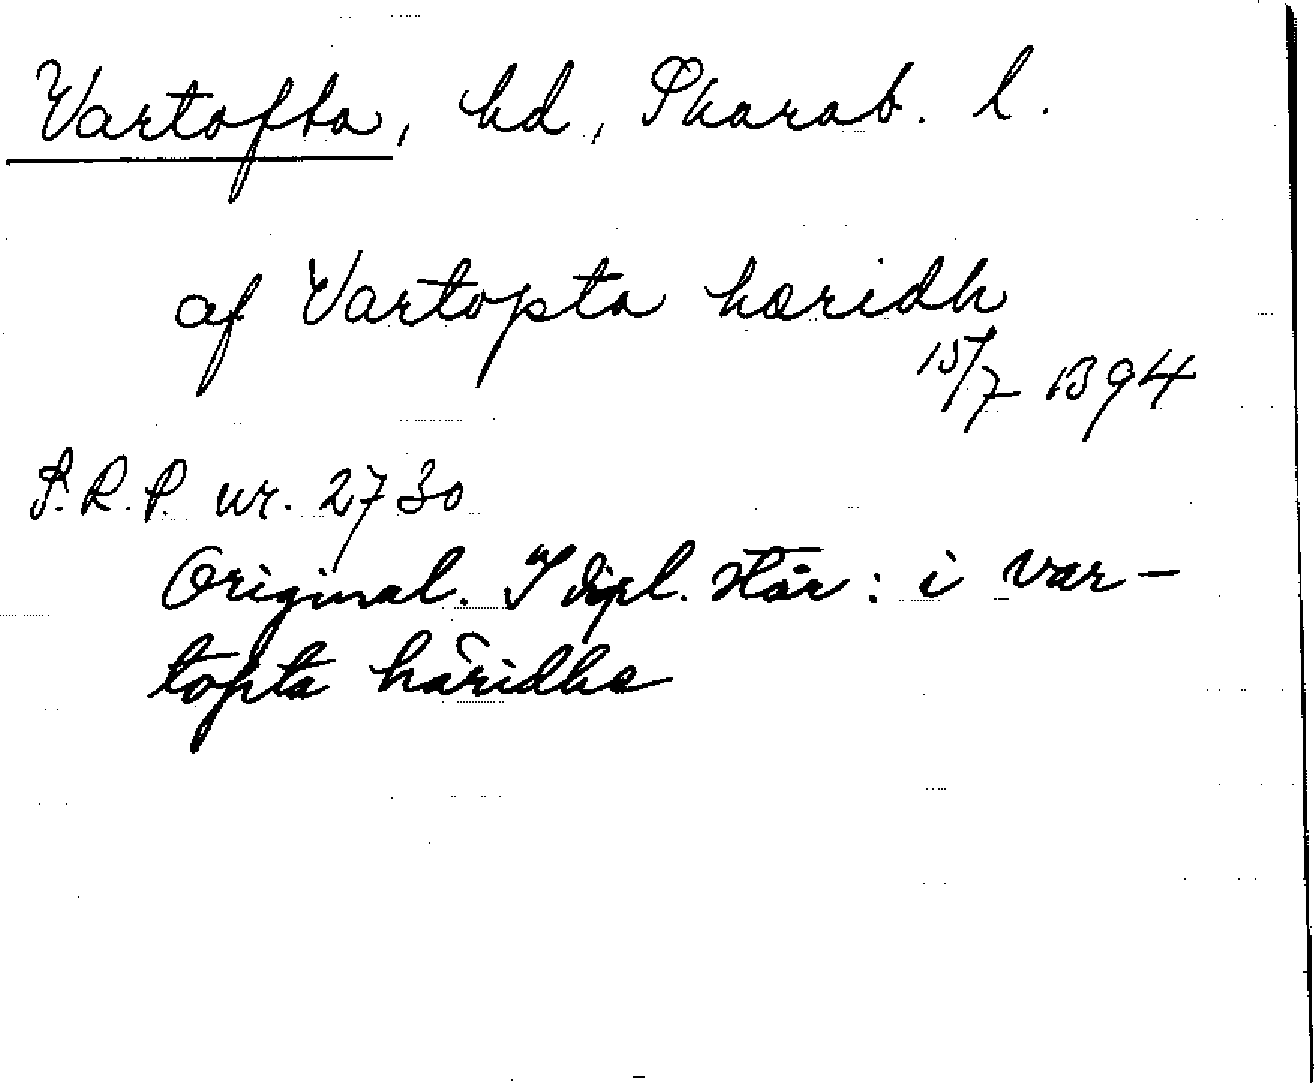 Vartofta, hd., Skarab. l.
af Vartopta hæridh
15/7 1394
S.R.P. nr. 2730
Original. I dipl. står: i var-
topta häridhe